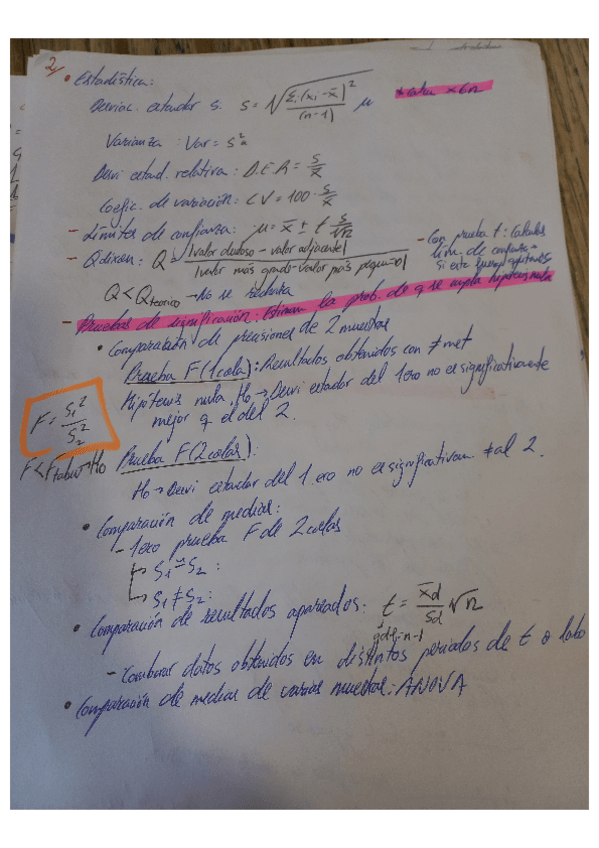 2/
• Estadística:
Desviac. estandar s: s = √(Σi(xi - x̄)²/(n-1)) μ
Varianza: Var = s²
Desvi estad. relativa: D.E.R = s/x̄
Coefic. de variación: CV = 100 · s/x̄
- Límites de confianza: μ = x̄ ± t s/√n
- Q dixon: Q = |valor dudoso - valor adjacente| / |valor más grande - valor más pequeño|
- Con prueba t: Calculas
lim de confianza
si este
Q < Qteorico → No se rechaza
- Pruebas de significación: Estiman la prob. de q se cumpla hipótesis nula
• Comparación de precisiones de 2 muestras
Prueba F (1 cola): Resultados obtenidos con ≠ met
Hipótesis nula, Ho → Desvi estandar del 1ero no es significativamente
mejor q el del 2.
F = S₁²/S₂²
F < Ftabu → Ho
Prueba F (2 colas):
Ho → Desvi estandar del 1.ero no es significativam. ≠ al 2.
• Comparación de medias:
- 1ero prueba F de 2 colas
→ S₁ = S₂ :
→ S₁ ≠ S₂ :
• Comparación de resultados apareados: t = x̄d/sd √n
gdl = n-1
- Comparar datos obtenidos en distintos periodos de t o labo
• Comparación de medias de varias muestras: ANOVA